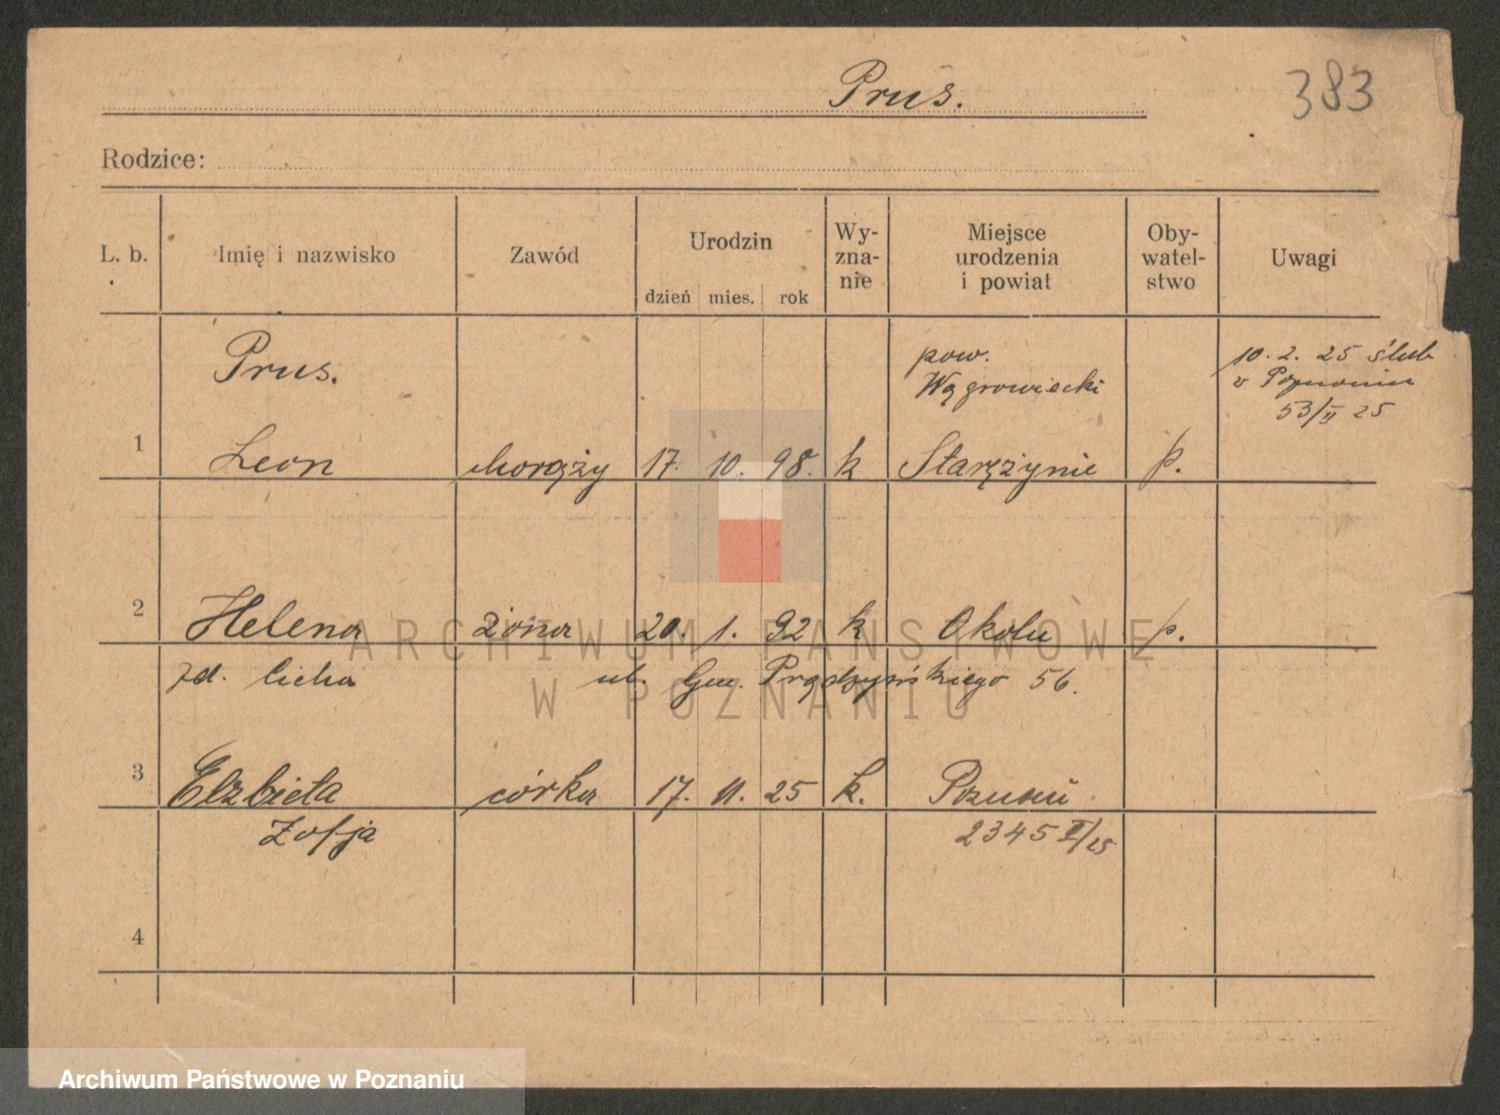 Prus.
383
Rodzice:
L. b.
Imię i nazwisko
Zawód
Urodzin
dzień mies. rok
Wy-
zna-
nie
Miejsce
urodzenia
i powiat
Oby-
watel-
stwo
Uwagi
Prus.
pow.
Wągrowiecki
10. 2. 25 ślub
w Poznaniu
53/II 25
1 Leon chorąży 17. 10. 98. k Starężynie p.
2 Helena żona 20. 1. 92 k Okolu p.
zd. Cicha ul. Gen. Prądzyńskiego 56.
3 Elzbieta córka 17. 11. 25 k. Poznań
Zofja 2345 II/25
4
ARCHIWUM PAŃSTWOWE
W POZNANIU
Archiwum Państwowe w Poznaniu